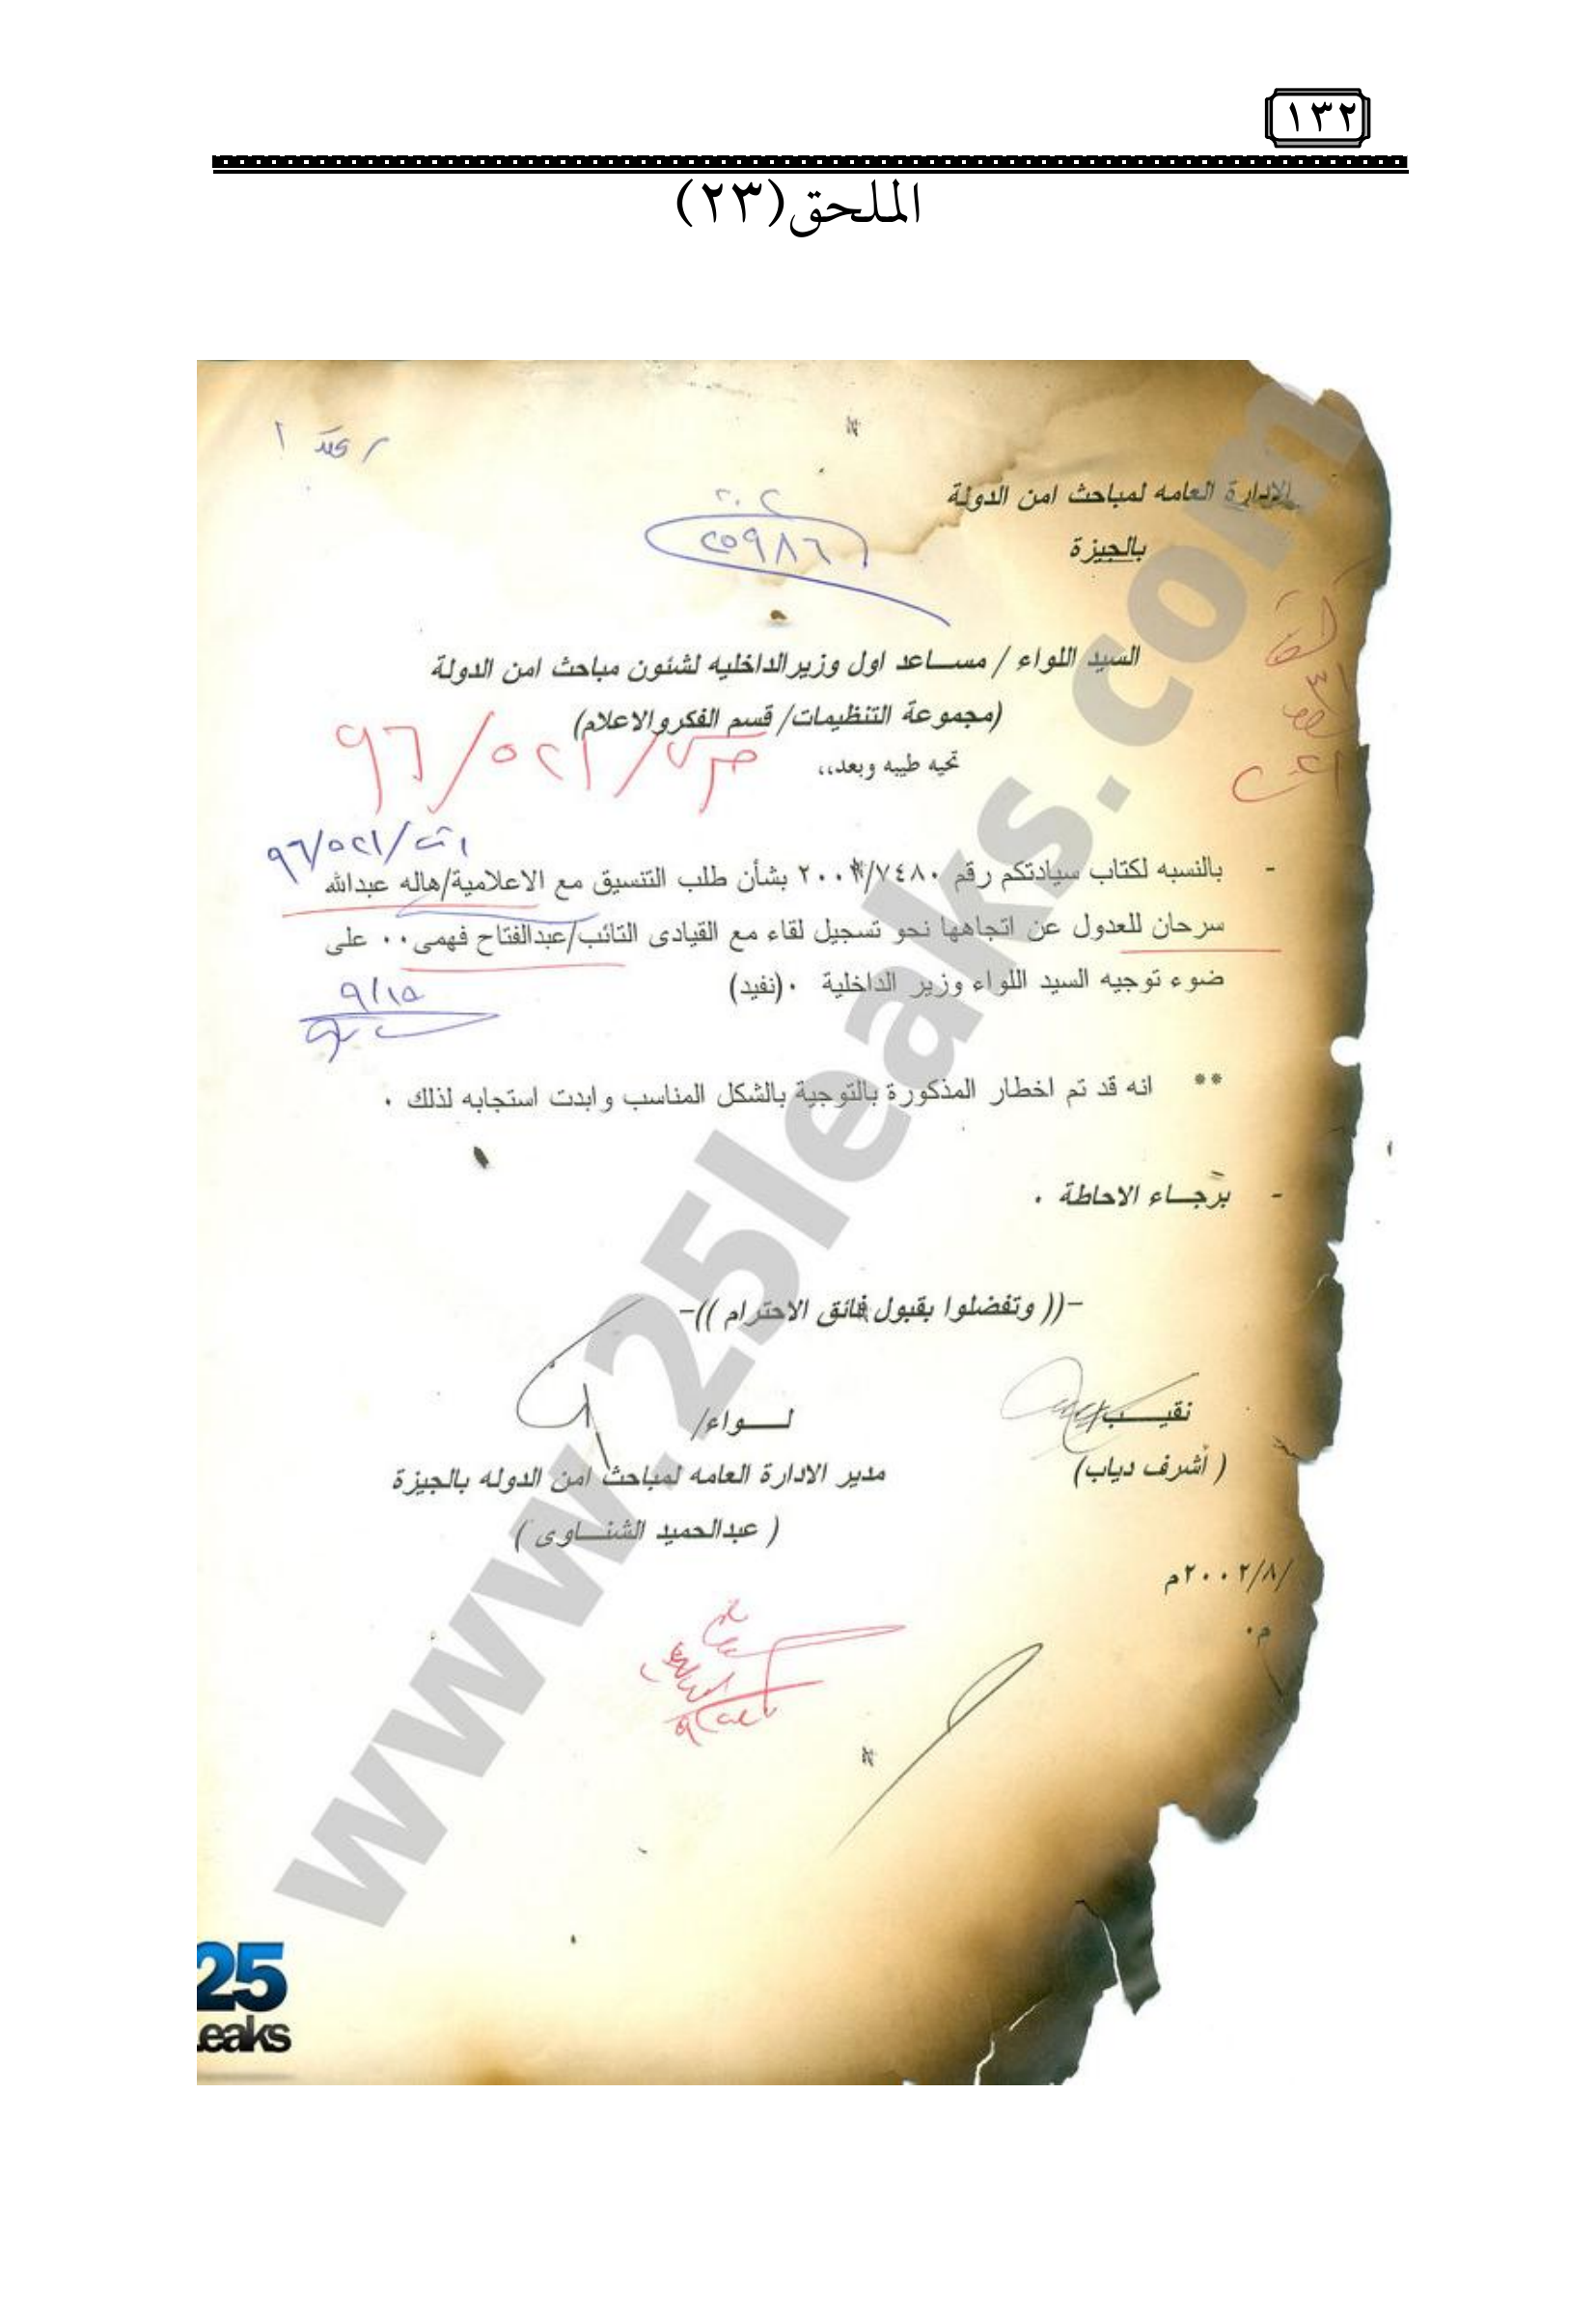 ١٣٢
الملحق(٢٣)
الادارة العامه لمباحث امن الدولة
بالجيزة
٢٥٩٨٦
السيد اللواء / مســاعد اول وزيرالداخليه لشئون مباحث امن الدولة
(مجموعة التنظيمات/ قسم الفكروالاعلام)
تحيه طيبه وبعد،،
٩٦/٥٢١/
٩٦/٥٢١/
- بالنسبه لكتاب سيادتكم رقم ٧٤٨٠/ بشأن طلب التنسيق مع الاعلامية/هاله عبدالله
سرحان للعدول عن اتجاهها نحو تسجيل لقاء مع القيادى التائب/عبدالفتاح فهمى٠٠ على
ضوء توجيه السيد اللواء وزير الداخلية ٠(نفيد)
٩/١٥
** انه قد تم اخطار المذكورة بالتوجية بالشكل المناسب وابدت استجابه لذلك ٠
- برجــاء الاحاطة ٠
-(( وتفضلوا بقبول فائق الاحترام ))-
نقيــــب/
لــــواء/
( أشرف دياب)
مدير الادارة العامه لمباحث امن الدوله بالجيزة
( عبدالحميد الشنــاوى )
/٢٠٠٢/٨م
م٠
www.25leaks.com
25
Leaks